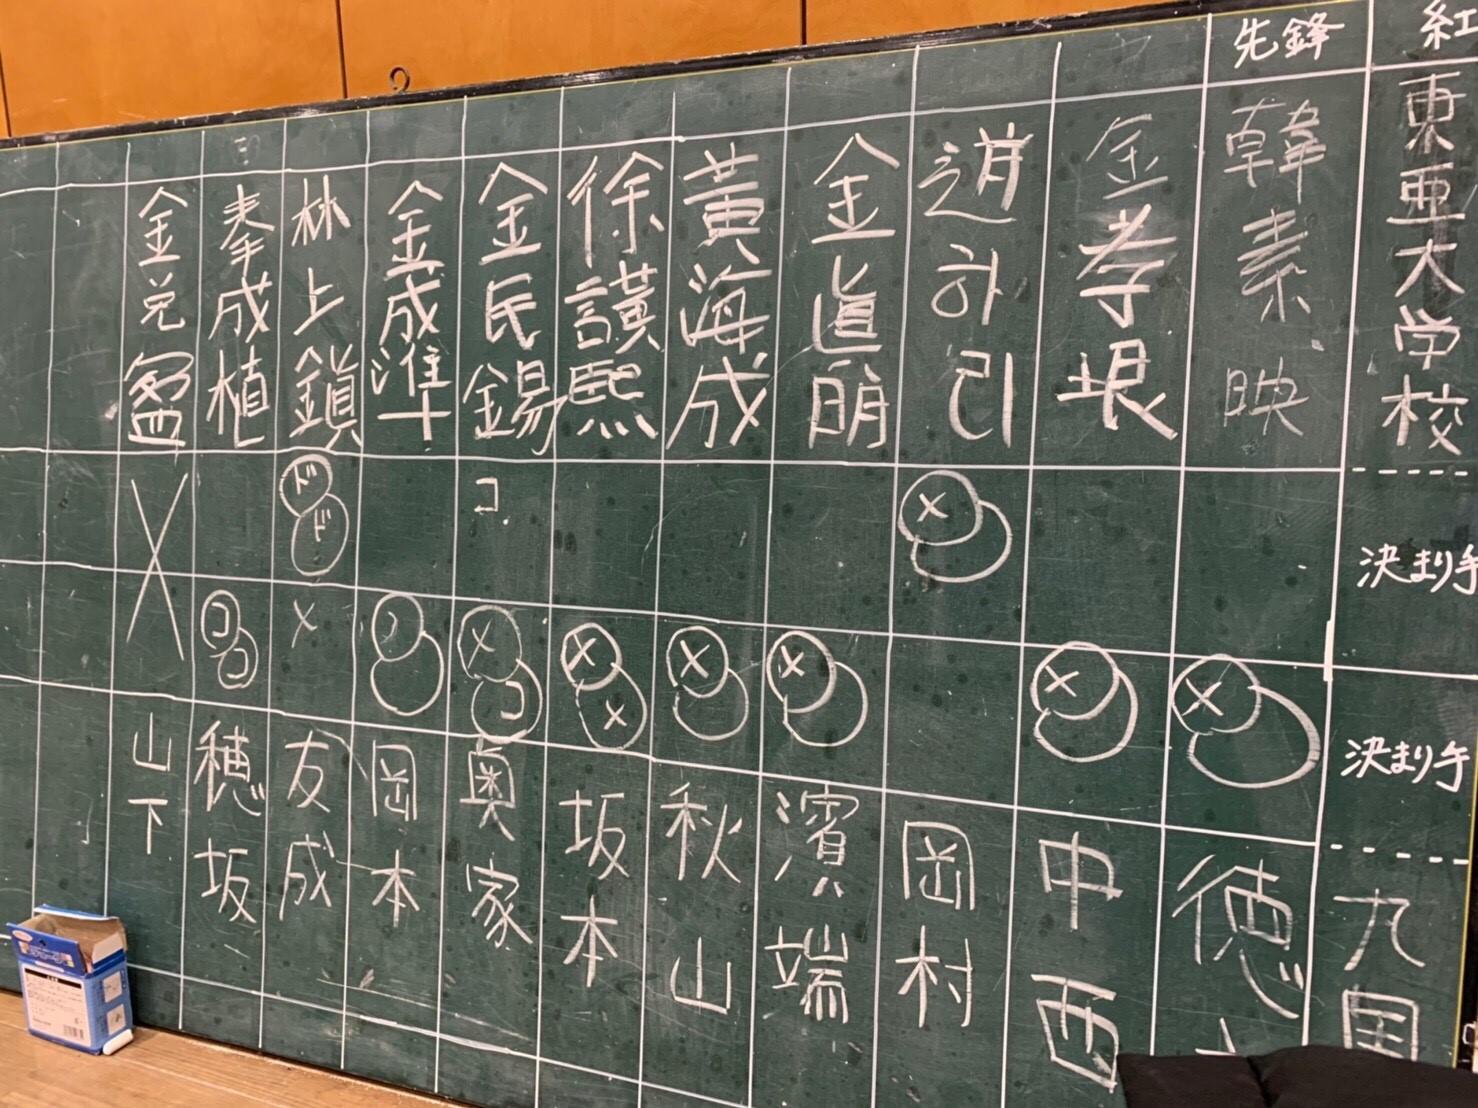 先鋒
紅
東亜大学校
決まり手
決まり手
九
韓素映
徳
金孝垠
中西
趙하린
岡村
金眞明
濱端
黄海成
秋山
徐讃熙
坂本
金民錫
コ
コ
奥家
金成準
岡本
林上鎮
ド
ド
友成
成植
コ
コ
穂坂
金兌
山下